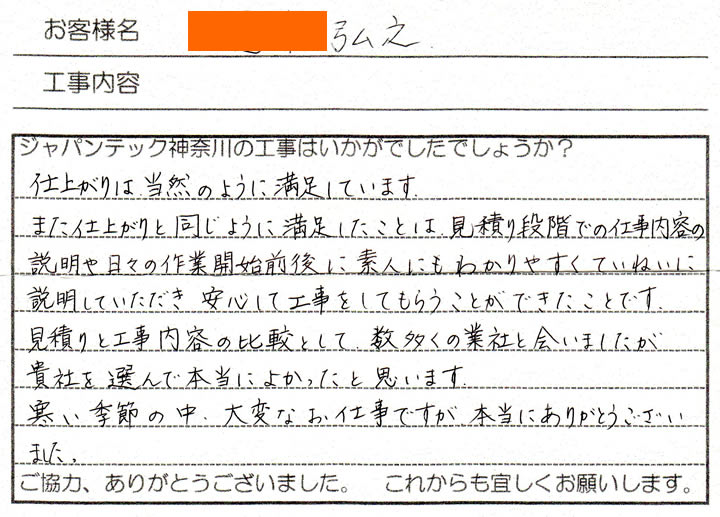 お客様名 弘之
工事内容
ジャパンテック神奈川の工事はいかがでしたでしょうか?
仕上がりは、当然のように満足しています。
また仕上がりと同じように満足したことは、見積り段階での仕事内容の
説明や日々の作業開始前後に素人にもわかりやすくていねいに
説明していただき安心して工事をしてもらうことができたことです。
見積りと工事内容の比較として、数多くの業社と会いましたが
貴社を選んで本当によかったと思います。
寒い季節の中、大変なお仕事ですが本当にありがとうござい
ました。
ご協力、ありがとうございました。 これからも宜しくお願いします。